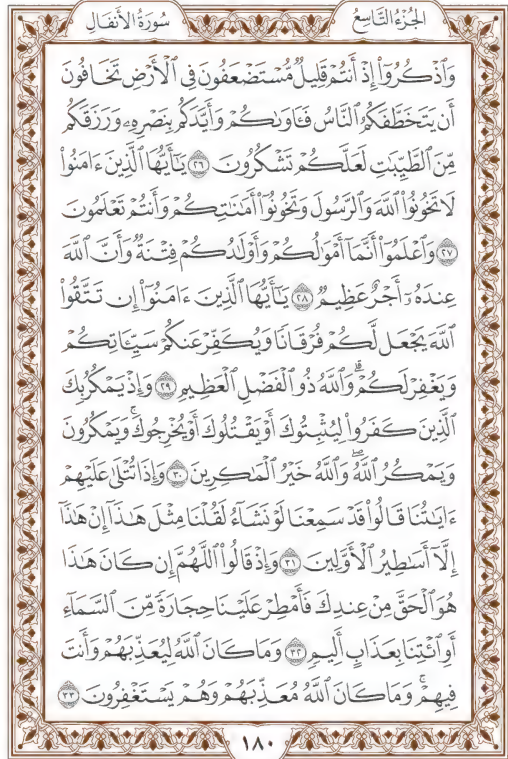 الجُزْءُ التَّاسِعُ
سُورَةُ الأَنفَالِ
وَٱذْكُرُوٓا۟ إِذْ أَنتُمْ قَلِيلٌ مُّسْتَضْعَفُونَ فِى ٱلْأَرْضِ تَخَافُونَ
أَن يَتَخَطَّفَكُمُ ٱلنَّاسُ فَـَٔاوَىٰكُمْ وَأَيَّدَكُم بِنَصْرِهِۦ وَرَزَقَكُم
مِّنَ ٱلطَّيِّبَـٰتِ لَعَلَّكُمْ تَشْكُرُونَ ٢٦ يَـٰٓأَيُّهَا ٱلَّذِينَ ءَامَنُوا۟
لَا تَخُونُوا۟ ٱللَّهَ وَٱلرَّسُولَ وَتَخُونُوٓا۟ أَمَـٰنَـٰتِكُمْ وَأَنتُمْ تَعْلَمُونَ
٢٧ وَٱعْلَمُوٓا۟ أَنَّمَآ أَمْوَٰلُكُمْ وَأَوْلَـٰدُكُمْ فِتْنَةٌ وَأَنَّ ٱللَّهَ
عِندَهُۥٓ أَجْرٌ عَظِيمٌ ٢٨ يَـٰٓأَيُّهَا ٱلَّذِينَ ءَامَنُوٓا۟ إِن تَتَّقُوا۟
ٱللَّهَ يَجْعَل لَّكُمْ فُرْقَانًا وَيُكَفِّرْ عَنكُمْ سَيِّـَٔاتِكُمْ
وَيَغْفِرْ لَكُمْ ۗ وَٱللَّهُ ذُو ٱلْفَضْلِ ٱلْعَظِيمِ ٢٩ وَإِذْ يَمْكُرُ بِكَ
ٱلَّذِينَ كَفَرُوا۟ لِيُثْبِتُوكَ أَوْ يَقْتُلُوكَ أَوْ يُخْرِجُوكَ ۚ وَيَمْكُرُونَ
وَيَمْكُرُ ٱللَّهُ ۖ وَٱللَّهُ خَيْرُ ٱلْمَـٰكِرِينَ ٣٠ وَإِذَا تُتْلَىٰ عَلَيْهِمْ
ءَايَـٰتُنَا قَالُوا۟ قَدْ سَمِعْنَا لَوْ نَشَآءُ لَقُلْنَا مِثْلَ هَـٰذَآ ۙ إِنْ هَـٰذَآ
إِلَّآ أَسَـٰطِيرُ ٱلْأَوَّلِينَ ٣١ وَإِذْ قَالُوا۟ ٱللَّهُمَّ إِن كَانَ هَـٰذَا
هُوَ ٱلْحَقَّ مِنْ عِندِكَ فَأَمْطِرْ عَلَيْنَا حِجَارَةً مِّنَ ٱلسَّمَآءِ
أَوِ ٱئْتِنَا بِعَذَابٍ أَلِيمٍ ٣٢ وَمَا كَانَ ٱللَّهُ لِيُعَذِّبَهُمْ وَأَنتَ
فِيهِمْ ۚ وَمَا كَانَ ٱللَّهُ مُعَذِّبَهُمْ وَهُمْ يَسْتَغْفِرُونَ ٣٣
١٨٠